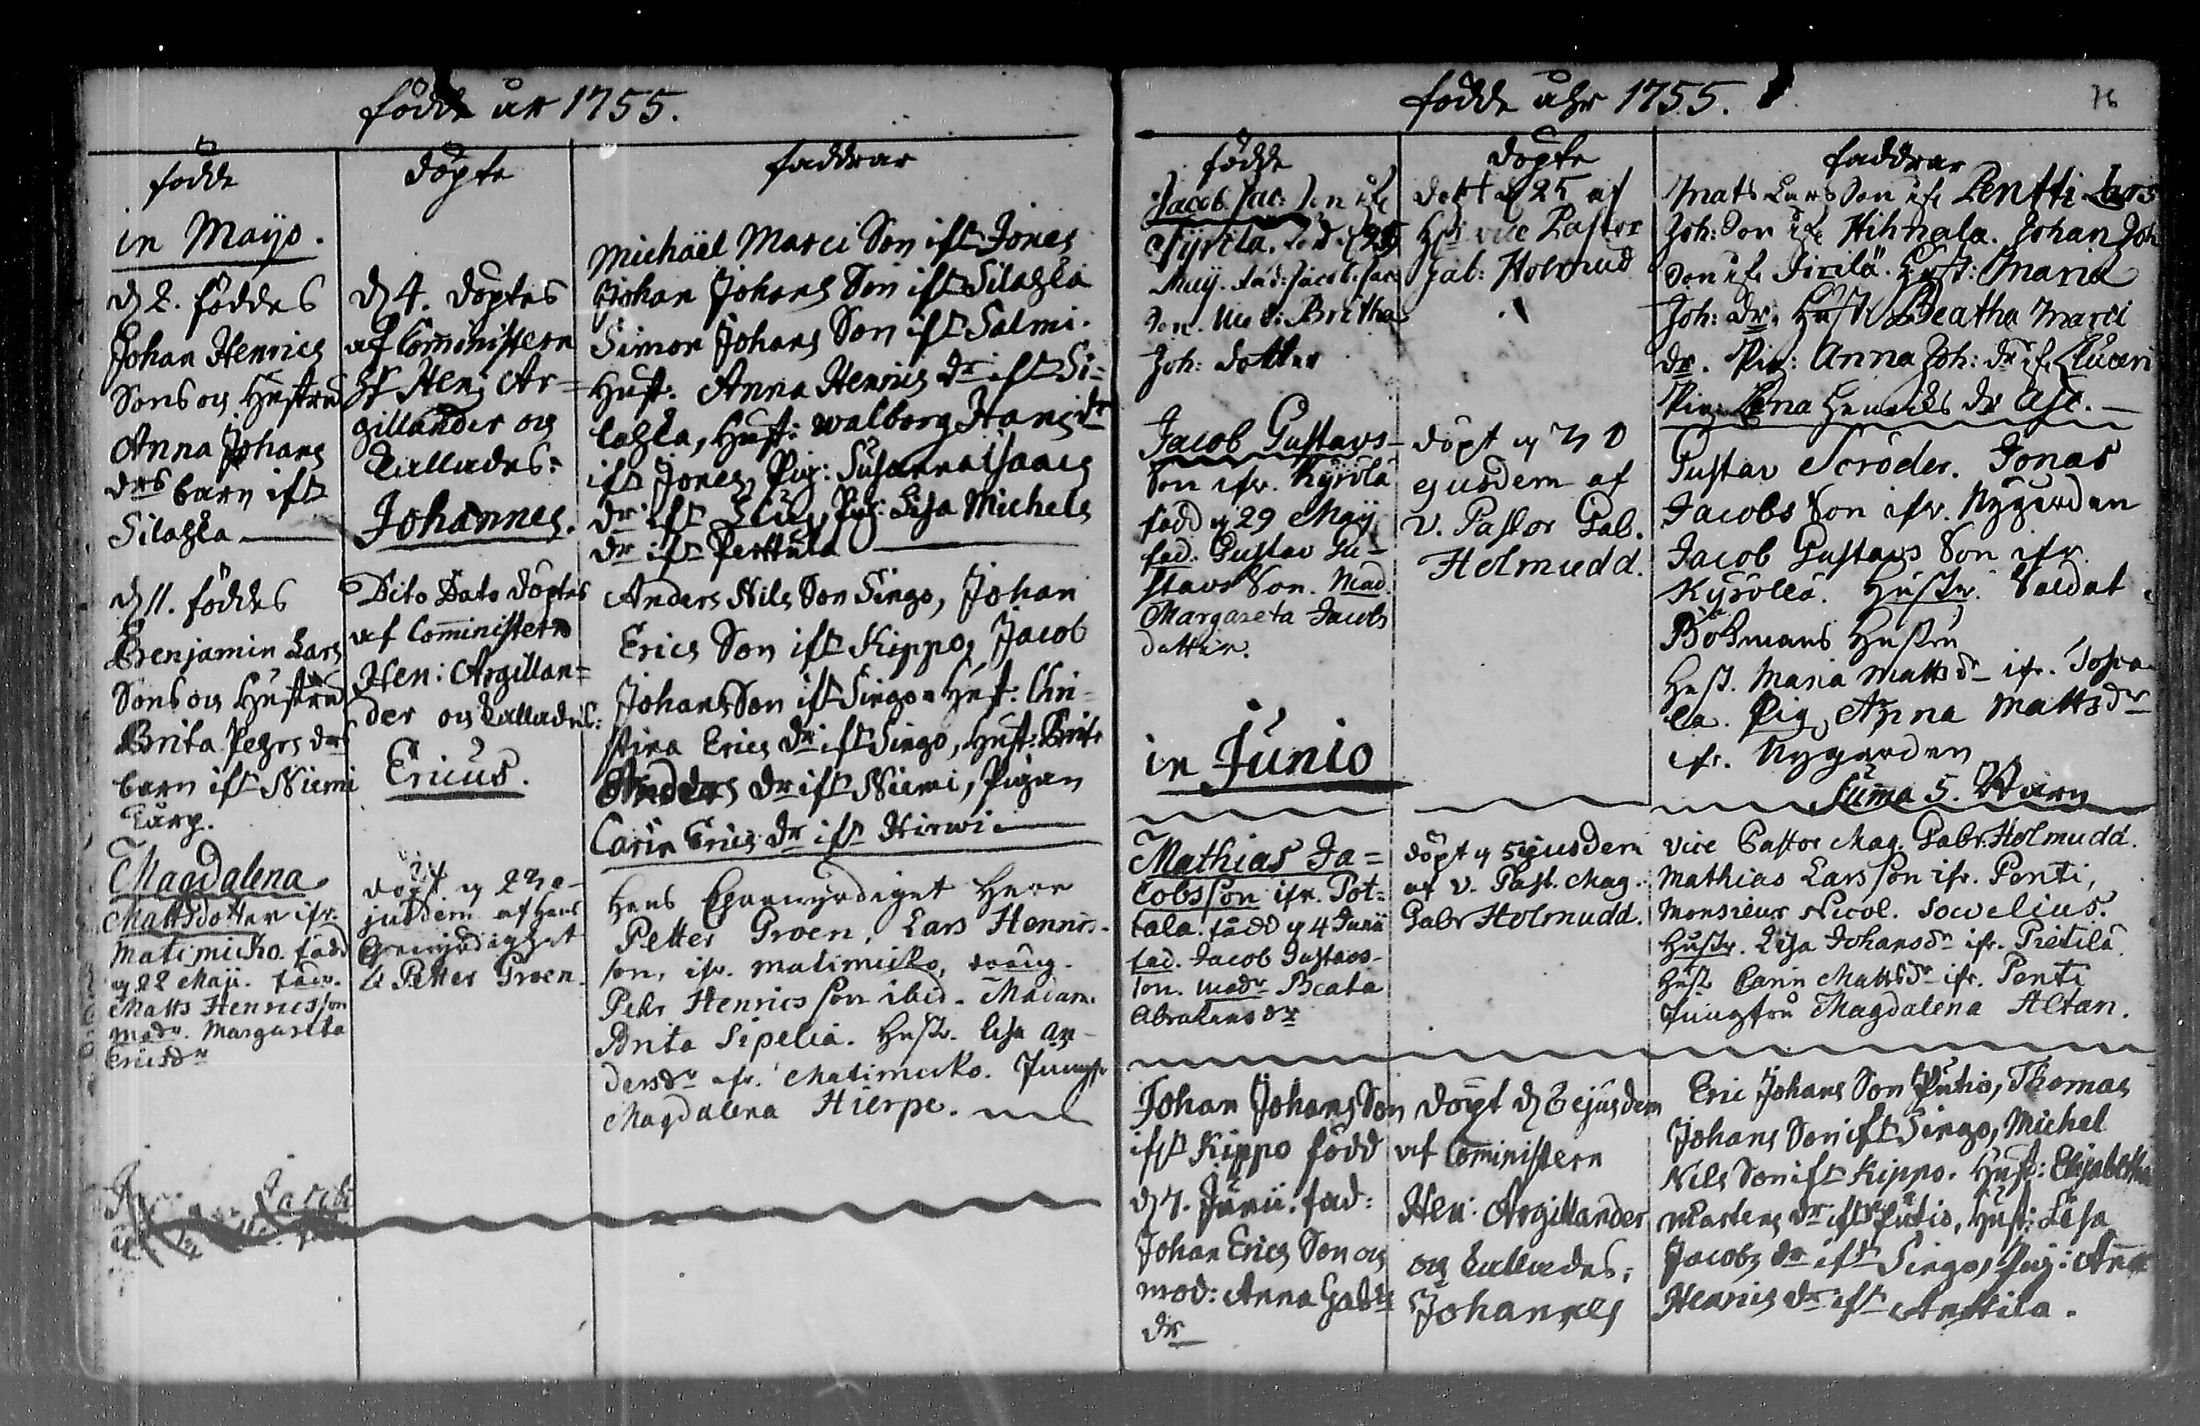 födde år 1755.
födde
döpte
faddrar
in Mayo.
d 2. föddes
Johan Henrics
Sons og Hustrus
Anna Johans
drs barn ifr
Silahla
d 4. döptes
af Comministern
Hr Hen: Ar=
gillander og
kallades:
Johannes.
Michäel Marci Son ifr Jones
Johan Johans Son ifr Silahla
Simon Johans Son ifr Salmi.
Hust. Anna Henrics dr ifr Si=
lahla, Hust: Walborg Hans dr
ifr Jones, Pig: Susanna Isaacs
dr ifr Pig: Lisa Michels
dr ifr Perttula
d 11. föddes
Benjamin Lars
Sons og Hustrus
Brita Pehrs drs
barn ifr Niemi
Torp.
Dito Dato döptes
af Comministern
Hen: Argillan=
der og kallades:
Ericus.
Anders Nils Son Singo, Johan
Erics Son ifr Kippo, Jacob
Johans Son ifr Singo Hust: Chri=
stina Erics dr ifr Singo, Hust: Brita
Anders dr ifr Niemi, Pigan
Carin Erics dr ifr Hirwi
Magdalena
Mattsdotter ifr.
Matimicko. född
d 22 Maji. fadr.
Matts Henricsson
modr. Margareta
Ericsdr
döpt d 24 e=
jusdem af Hans
Petter Groen.
Hans Herr
Petter Groen, Lars Henrics-
son, ifr. Matimicko, dräng.
Pehr Henrics son ibid. Madam.
Brita Sipelia. Hustr. Lisa An-
dersdr ifr. Matimicko. Jungfr
Magdalena Hierpe.
Jacob
födde åhr 1755.
76
födde
döpte
faddrar
Jacob Jac: Son ifr
född d 25
Maij. fad: Jacob Jac
Son. Mod: Britha
Joh: dotter
döpt d 25 af
Hr vice Pastor
Gab: Holmud
Mats Lars Son ifr Pentti Lars
Joh: Son ifr Hihnala. Johan Joh
Son ifr Jirilä. Hust: Maria
Joh: dr. Hust: Beatha Marci
dr. Pig: Anna Joh: dr ifr
Pig: Lena Henrics dr
Jacob Gustavs-
Son ifr. Kyrölä
född d 29 Maij
fad. Gustav Gu-
stavs Son. Mod.
Margareta Jacobs
dotter.
döpt d 30
ejusdem af
V. Pastor Gab.
Holmudd.
Gustav Scröder. Jonas
Jacobs Son ifr. Nygården
Jacob Gustavs Son ifr.
Kyrölä. Hustr. Soldat
Böhmans Hustru
Hust. Maria Mattsdr ifr.
la. Pig. Anna Mattsdr
ifr. Nygården
Summa 5. Barn
in Junio
Mathias Ja=
cobsson ifr. Pot=
tala. född d 4 Junii
fad. Jacob Gustavs-
son. modr Beata
Abrahamsdr
döpt d 5 ejusdem
af V. Past. Mag.
Gabr Holmudd.
Vice Pastor Mag. Gabr. Holmudd.
Mathias Larsson ifr. Penti,
Monsieur Nicol. Sowelius.
Hustr. Lisa Johansdr ifr. Pietilä
Hust Carin Mattsdr ifr. Penti
Jungfru Magdalena Altan.
Johan Johans Son
ifr Kippo född
d 7. Junii. fad:
Johan Erics Son og
mod: Anna Gabr:
dr
döpt d 8 ejusdem
af Comministern
Hen: Argillander
og kallades:
Johannes
Eric Johans Son Putio, Thomas
Johans Son ifr Singo, Michel
Nils Son ifr Kippo. Hust: Elisabetha
Martens dr ifr Putio, Hust: Lisa
Jacobs dr ifr Singo, Pig: Anna
Henrics dr ifr Anttila.